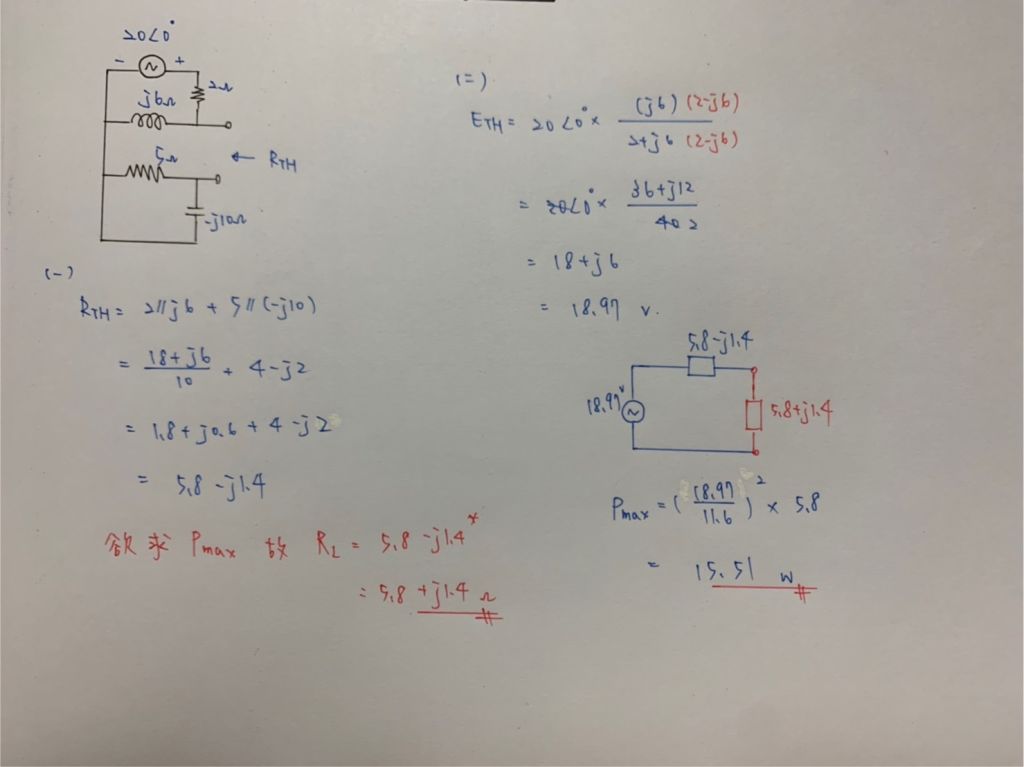 20∠0°
- +
2Ω
j6Ω
5Ω
← R_TH
-j10Ω
(一)
R_TH = 2∥j6 + 5∥(-j10)
= (18+j6)/10 + 4-j2
= 1.8+j0.6+4-j2
= 5.8-j1.4
欲求 Pmax 故 R_L = 5.8-j1.4*
= 5.8+j1.4 Ω
(二)
E_TH = 20∠0° × (j6)(2-j6)/2+j6(2-j6)
= 20∠0° × (36+j12)/40 2
= 18+j6
= 18.97 V.
5.8-j1.4
18.97V
5.8+j1.4
Pmax = (18.97/11.6)² × 5.8
= 15.51 W